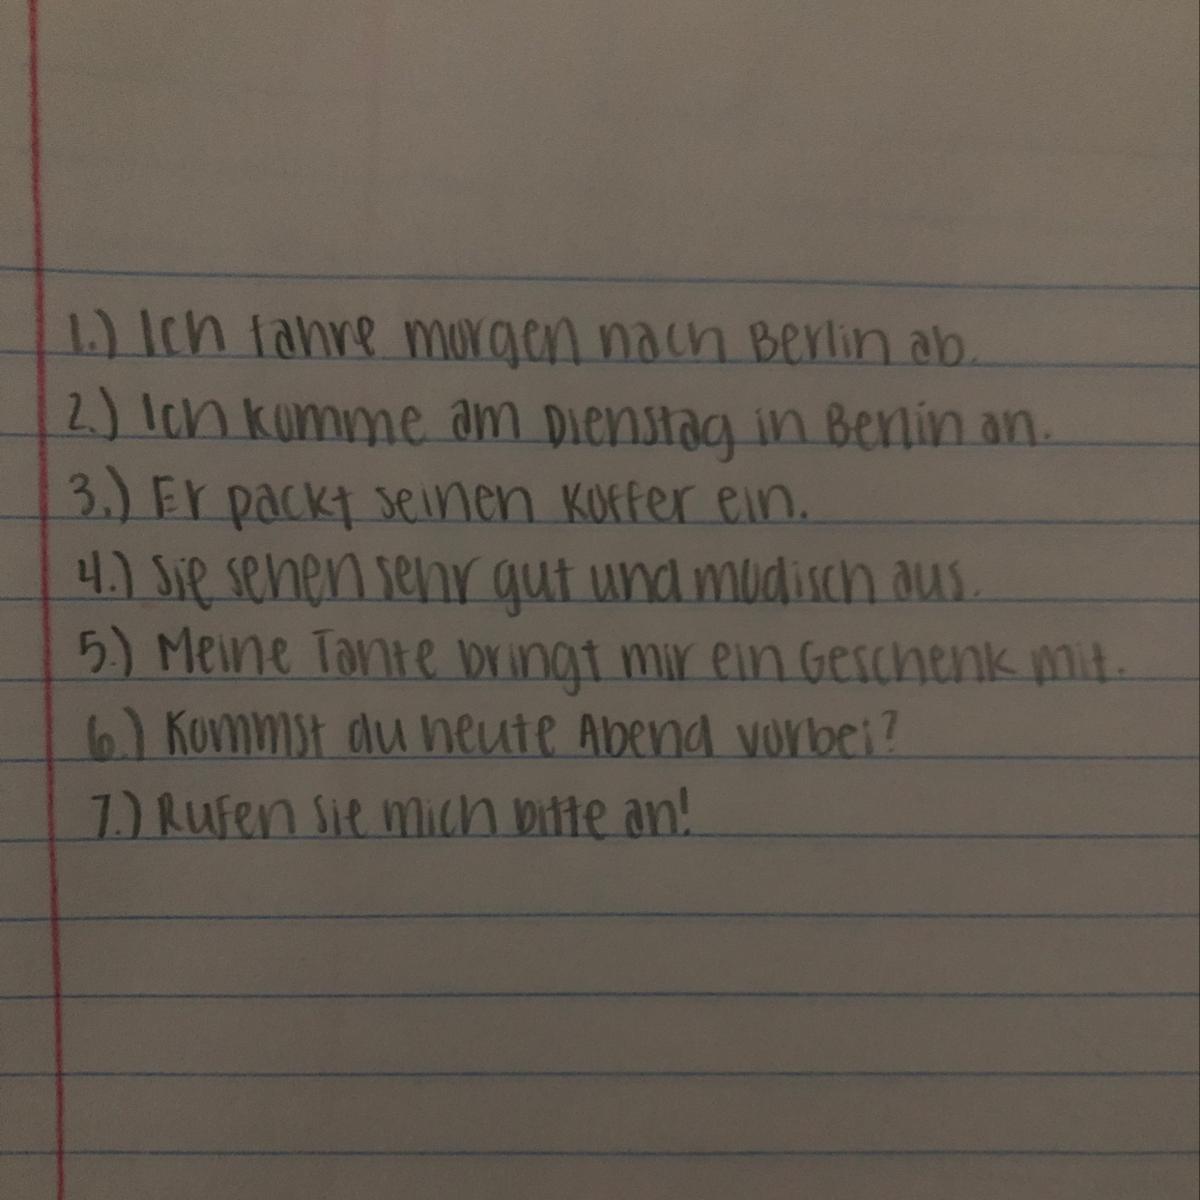 1.) Ich fahre morgen nach Berlin ab.
2.) Ich komme am Dienstag in Berlin an.
3.) Er packt seinen Koffer ein.
4.) Sie sehen sehr gut und modisch aus.
5.) Meine Tante bringt mir ein Geschenk mit.
6.) Kommst du heute Abend vorbei?
7.) Rufen Sie mich bitte an!